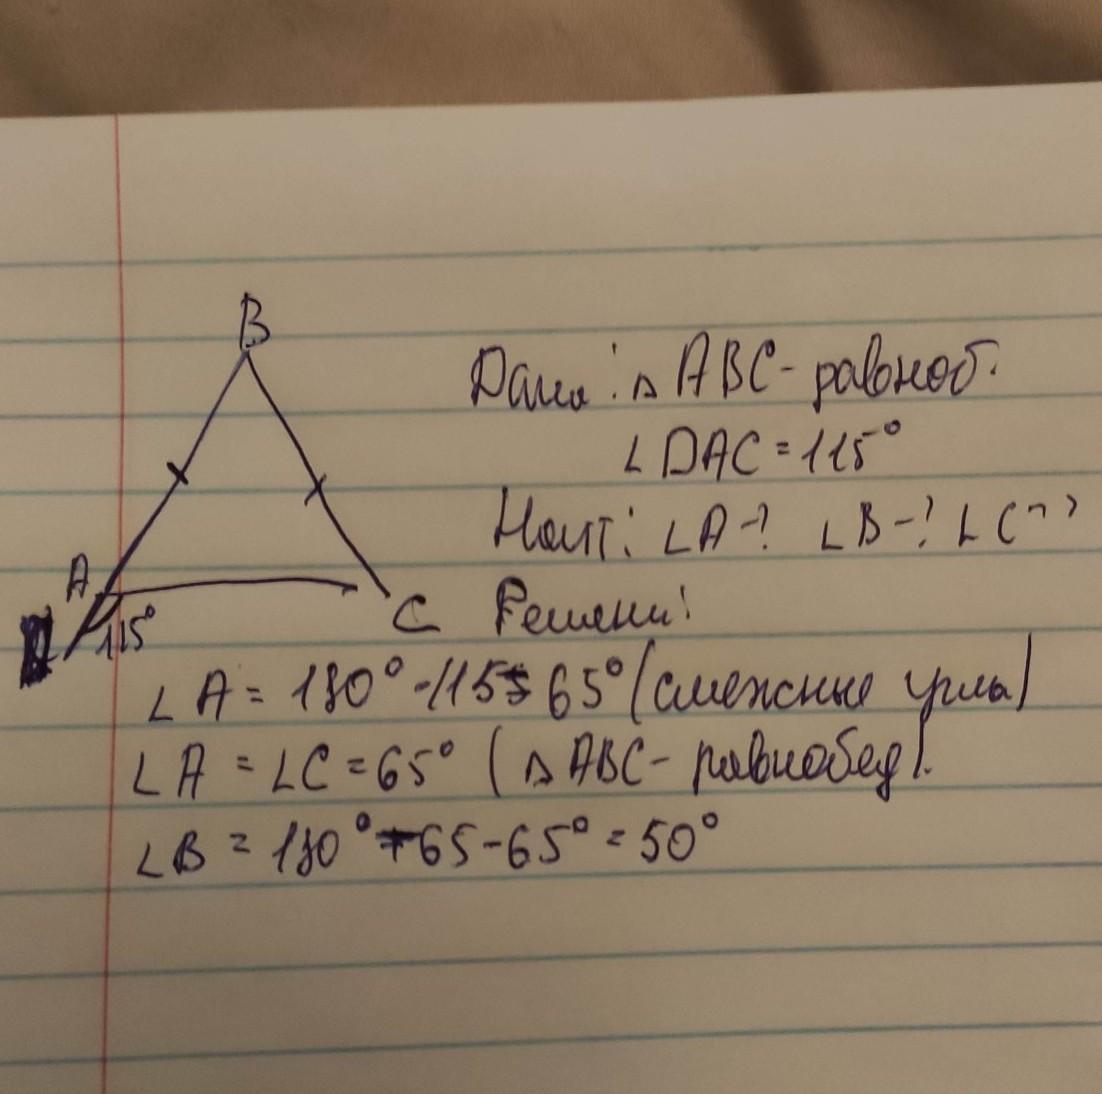 B
Дано: △ ABC - равноб.
∠ DAC = 115°
Найт: ∠A -? ∠B -? ∠C -?
A
C
Решени:
D
115°
∠ A = 180° - 115 = 65° (смежные углы)
∠ A = ∠C = 65° (△ ABC - равнобед).
∠B = 180° - 65 - 65° = 50°